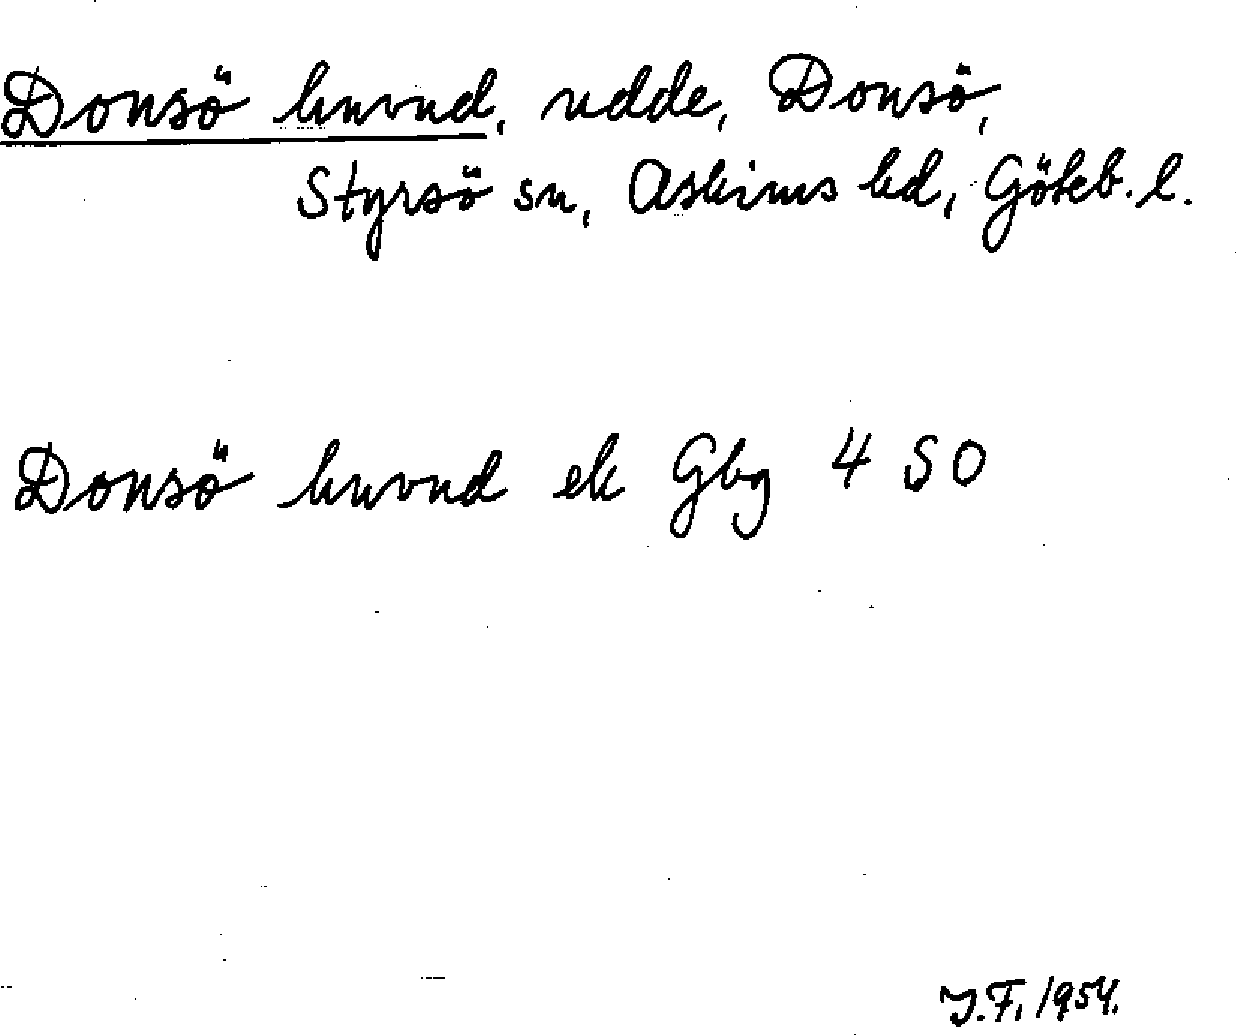 Donsö huvud, udde, Donsö,
Styrsö sn, Askims hd, Göteb. l.
Donsö huvud ek Gbg 4 SO
J.F. 1954.